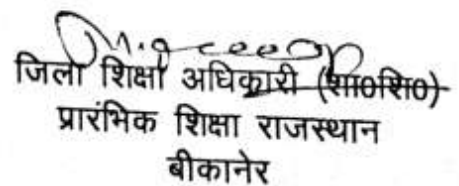 जिला शिक्षा अधिकारी (शा0शि0)
प्रारंभिक शिक्षा राजस्थान
बीकानेर